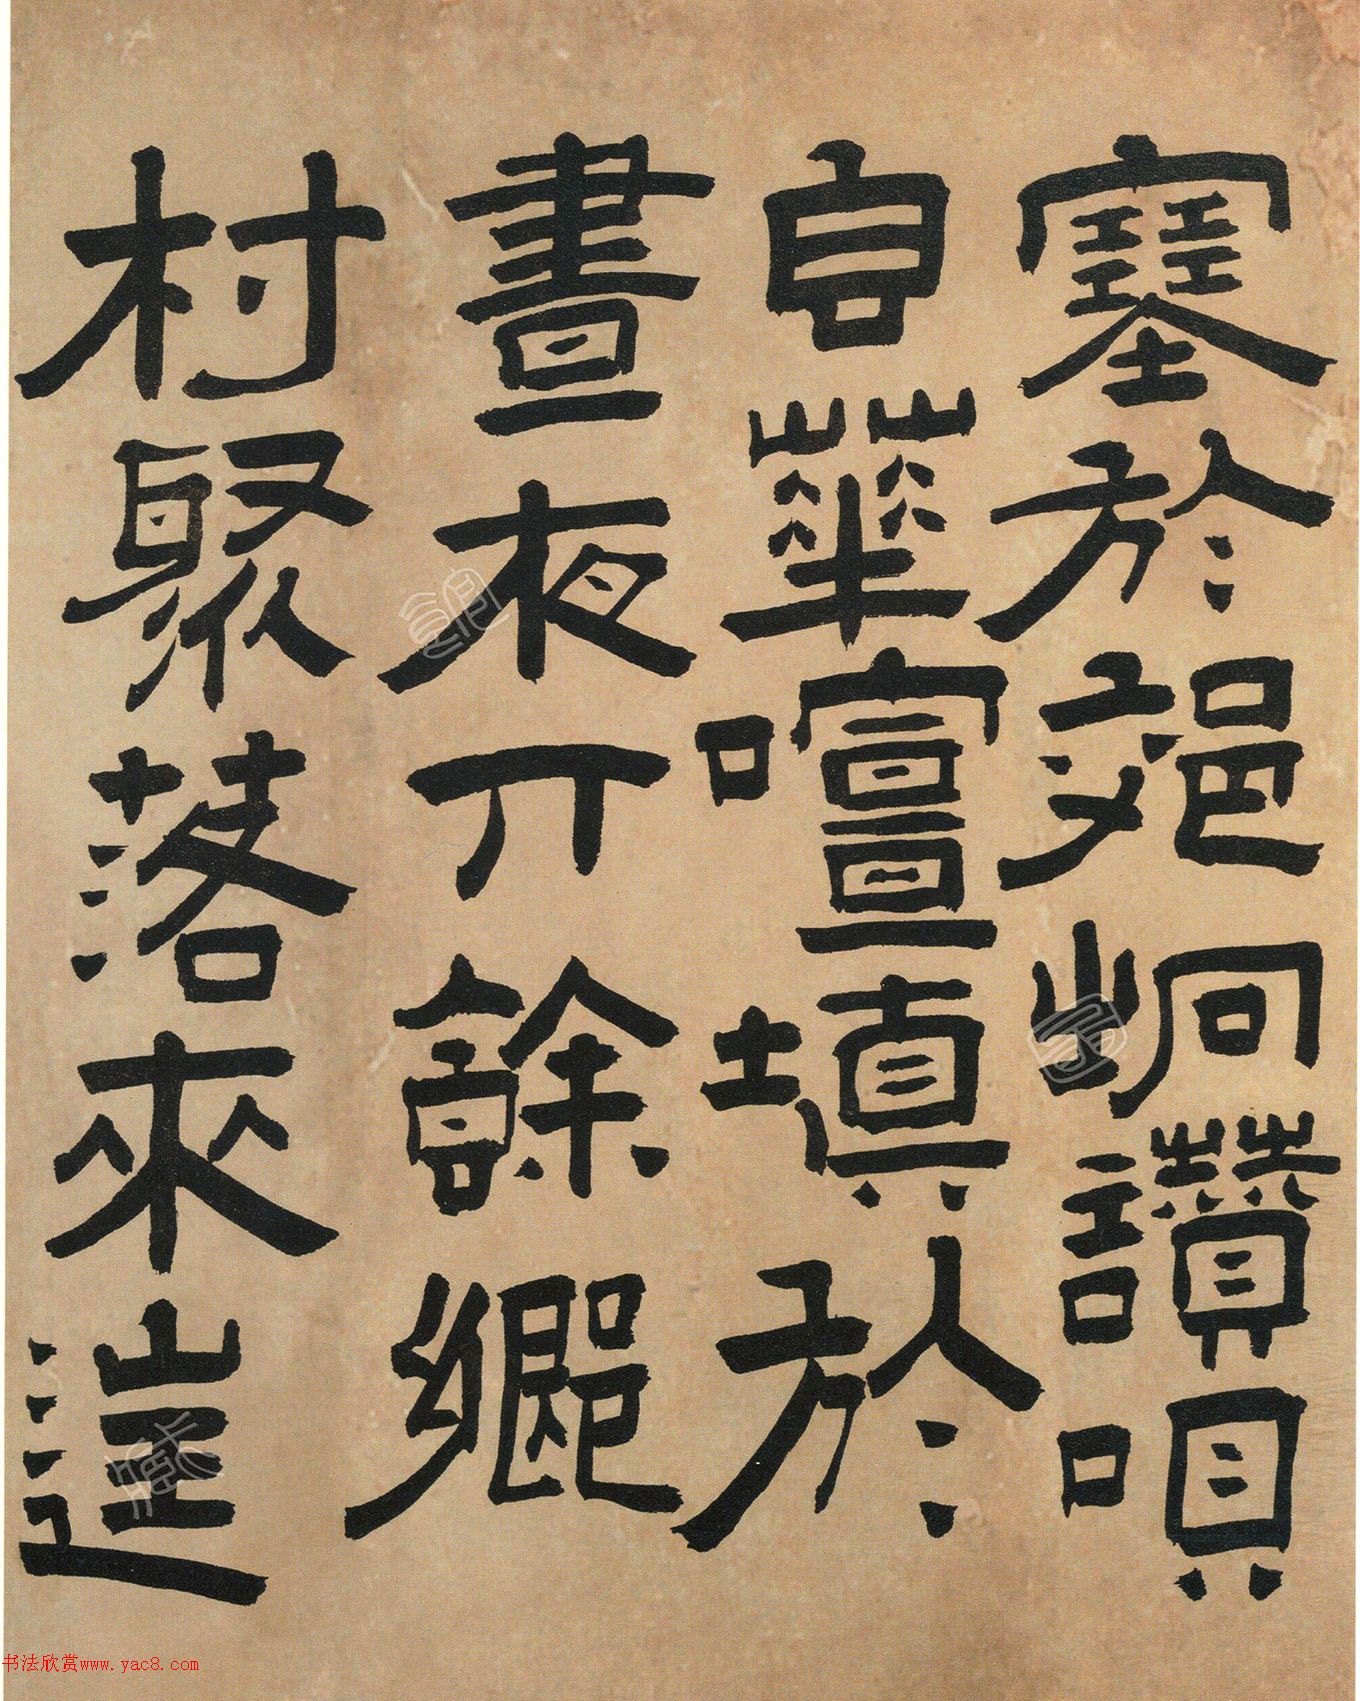 塞於郊坰讚唄
華喧填於
晝夜丌餘鄉
村聚落來往
书法欣赏www.yac8.com